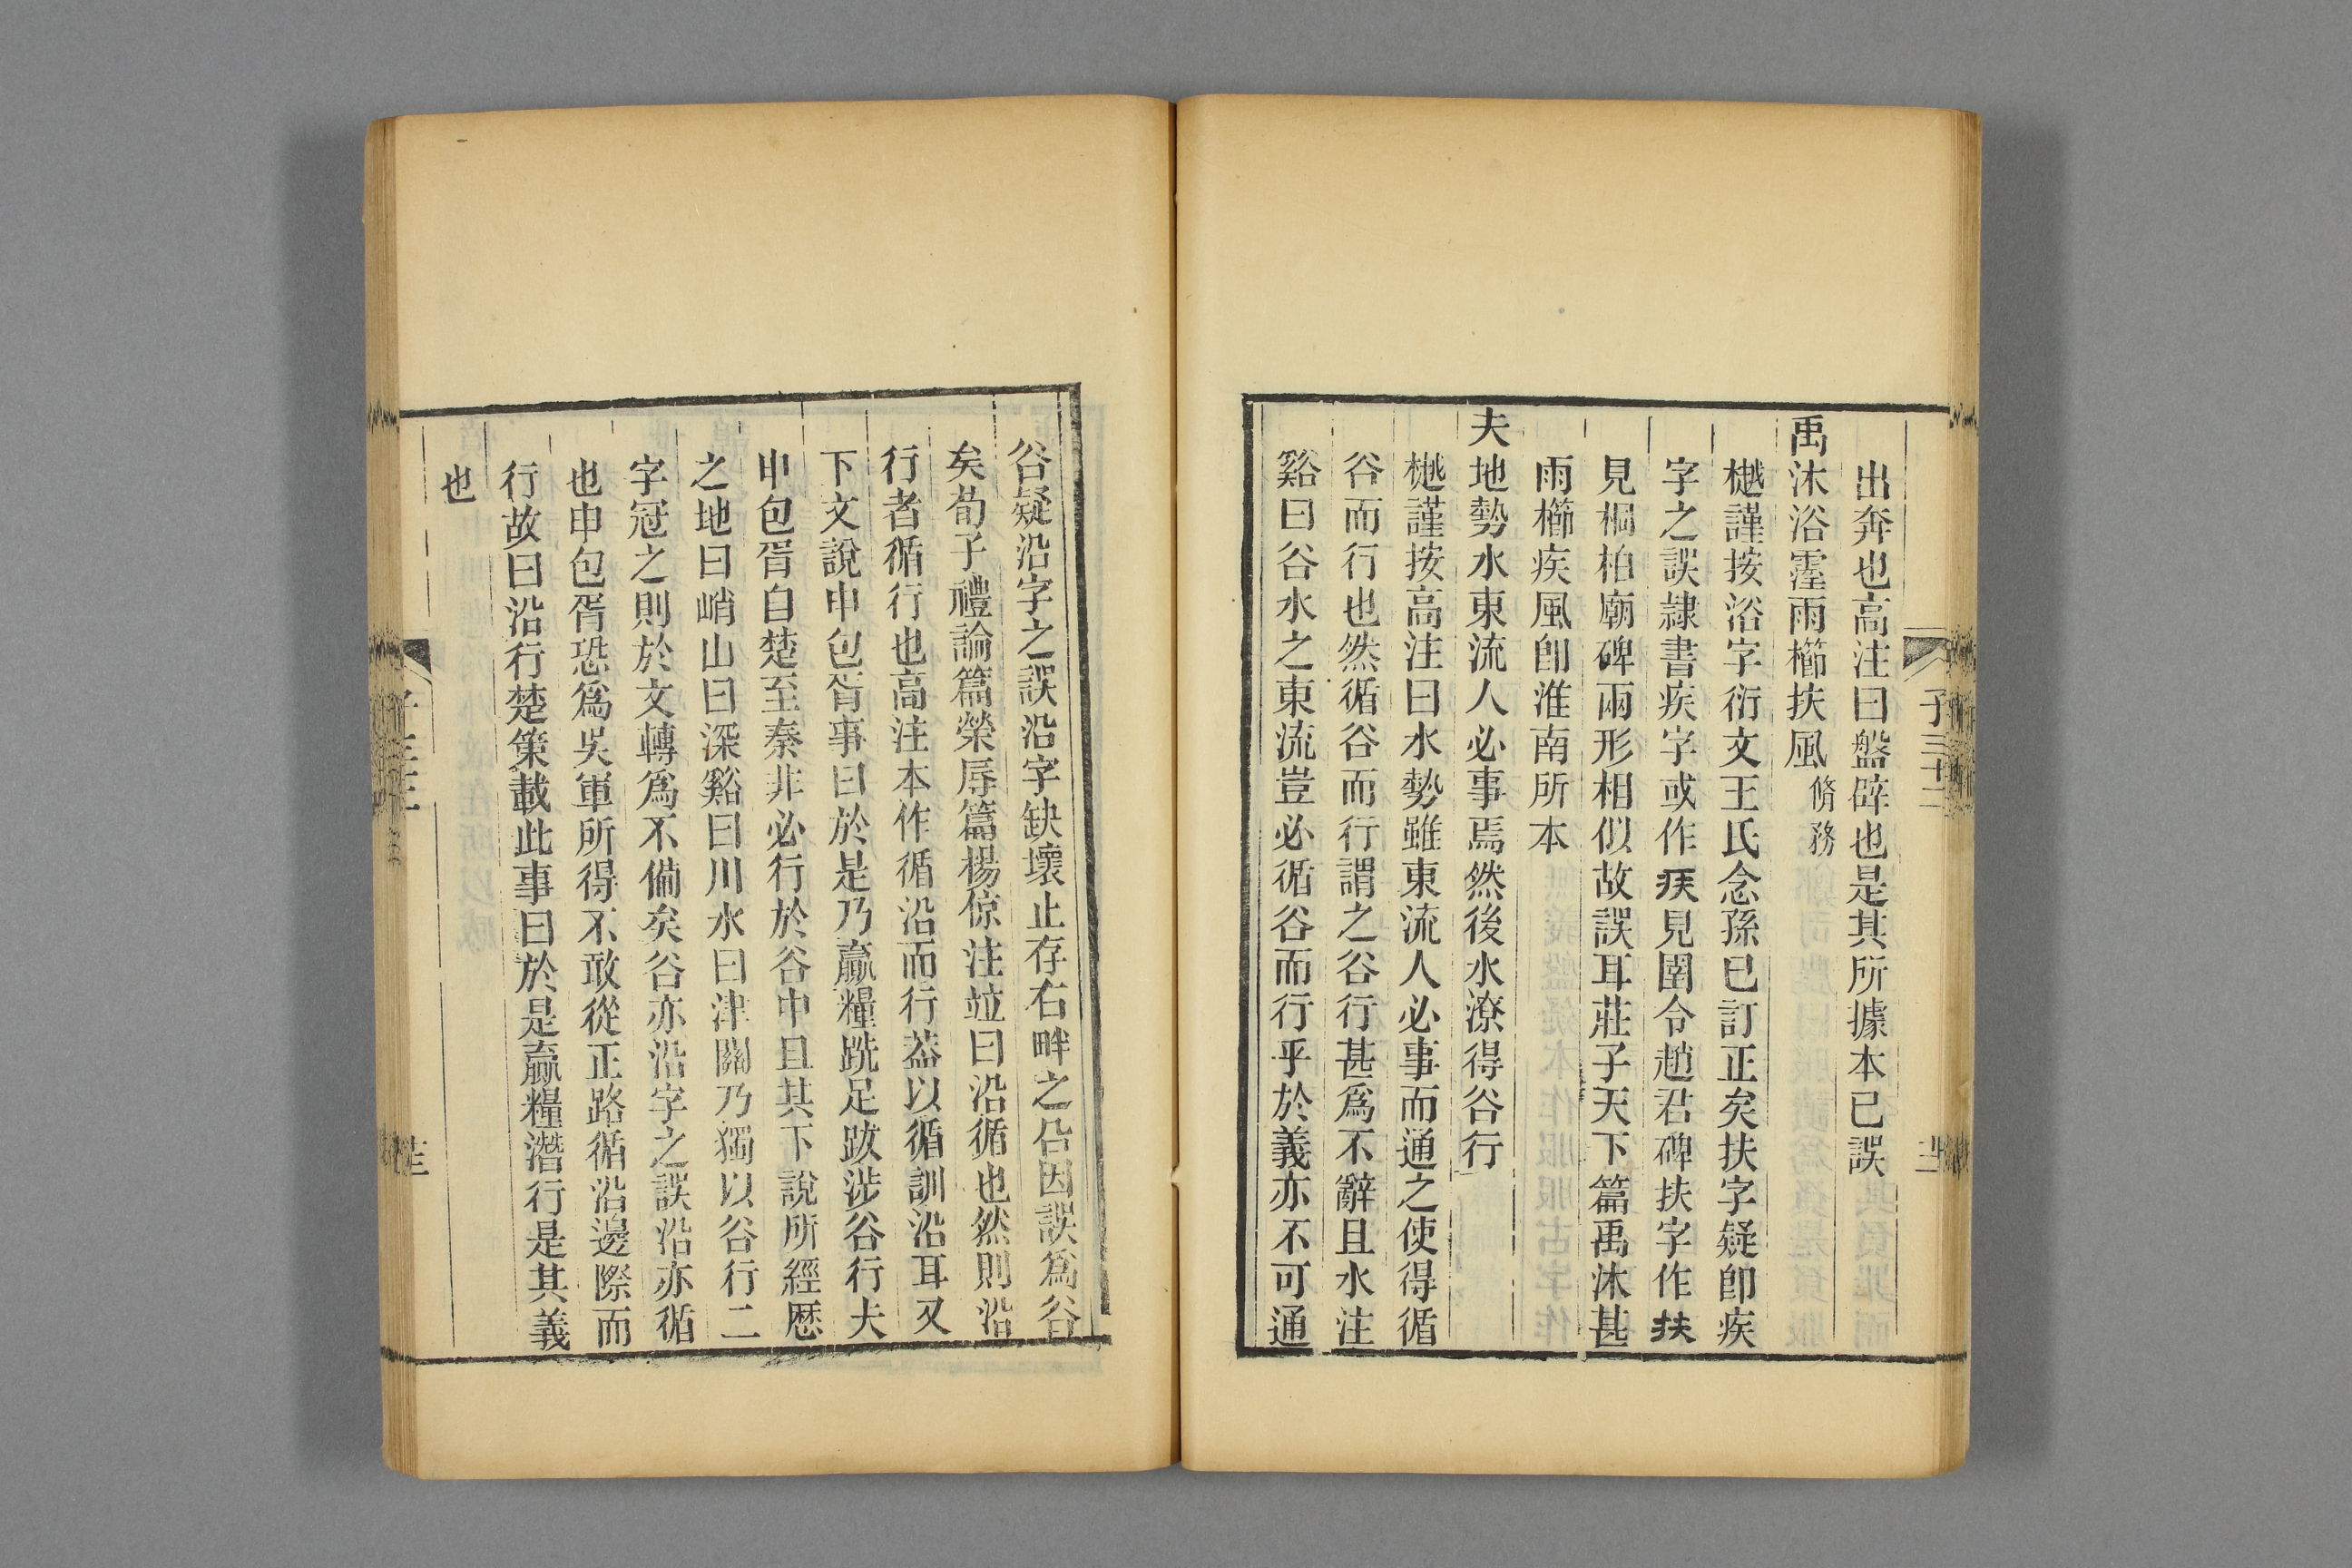 出奔也高注曰盤辟也是其所據本已誤
禹沐浴霪雨櫛扶風脩務
樾謹按浴字衍文王氏念孫已訂正矣扶字疑卽疾
字之誤隷書疾字或作疾見圉令趙君碑扶字作扶
見桐柏廟碑兩形相似故誤耳莊子天下篇禹沐甚
雨櫛疾風卽淮南所本
夫地勢水東流人必事焉然後水潦得谷行
樾謹按高注曰水勢雖東流人必事而通之使得循
谷而行也然循谷而行謂之谷行甚爲不辭且水注
谿曰谷水之東流豈必循谷而行乎於義亦不可通
子三十二
谷疑沿字之誤沿字缺壞止存右畔之㕣因誤爲谷
矣荀子禮論篇榮辱篇楊倞注竝曰沿循也然則沿
行者循行也高注本作循沿而行葢以循訓沿耳又
下文說申包胥事曰於是乃贏糧跣足跋涉谷行夫
申包胥自楚至秦非必行於谷中且其下說所經歷
之地曰峭山曰深谿曰川水曰津關乃獨以谷行二
字冠之則於文轉爲不備矣谷亦沿字之誤沿亦循
也申包胥恐爲吳軍所得不敢從正路循沿邊際而
行故曰沿行楚策載此事曰於是贏糧潛行是其義
也